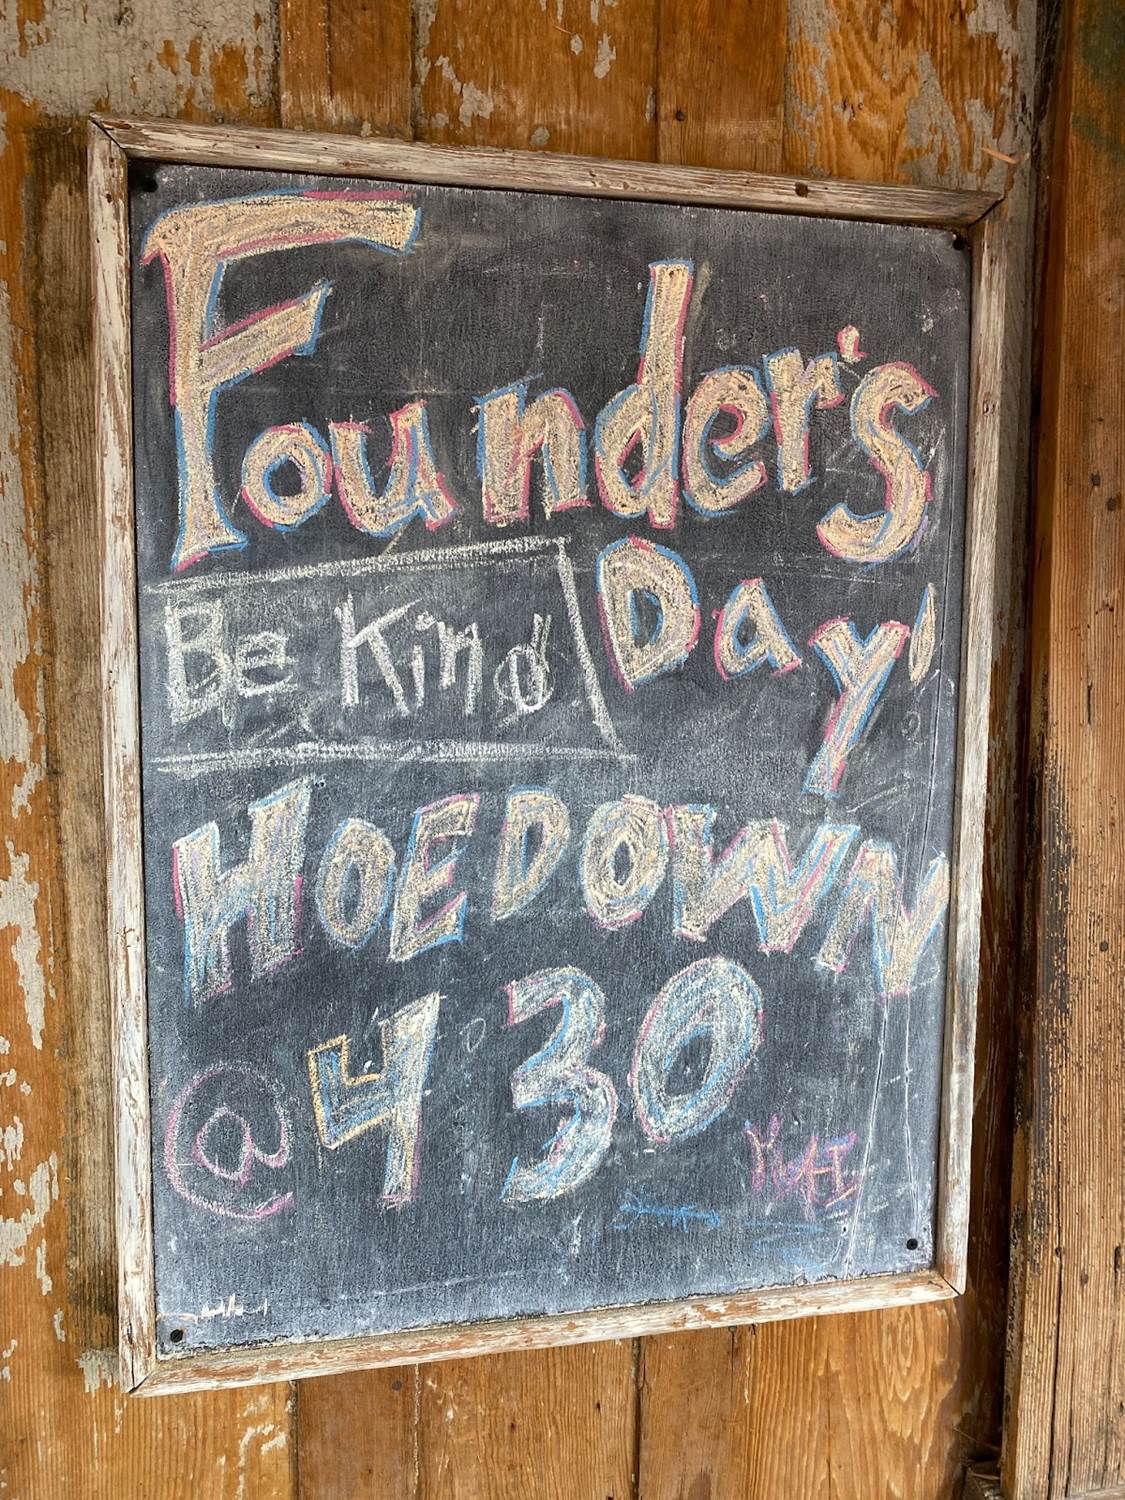 Founder's
Be Kind
Day!
HOEDOWN
@ 4 30